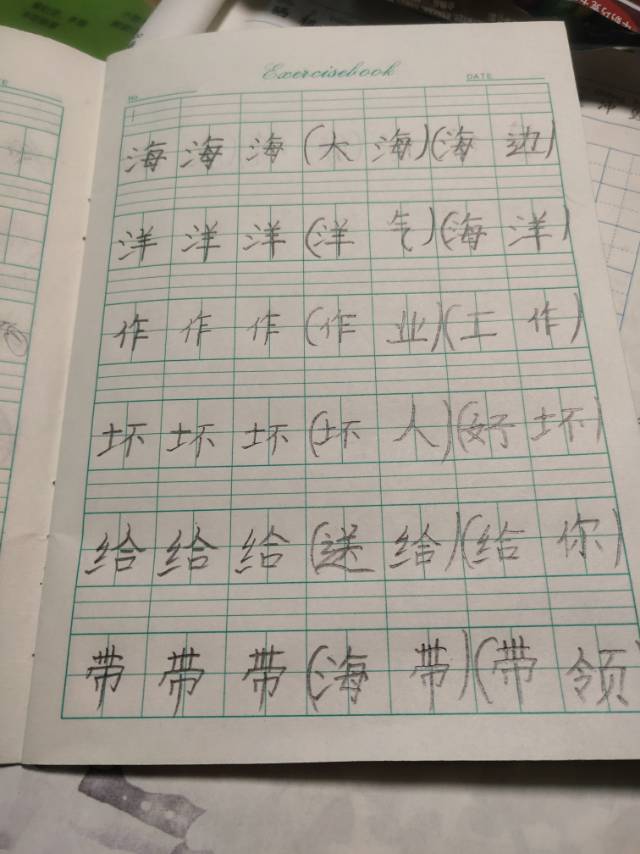 Exercisebook
No
DATE
海 海 海 (大 海)(海 边)
洋 洋 洋 (洋 气)(海 洋)
作 作 作 (作 业)(工 作)
坏 坏 坏 (坏 人)(好 坏)
给 给 给 (送 给)(给 你)
带 带 带 (海 带)(带 领